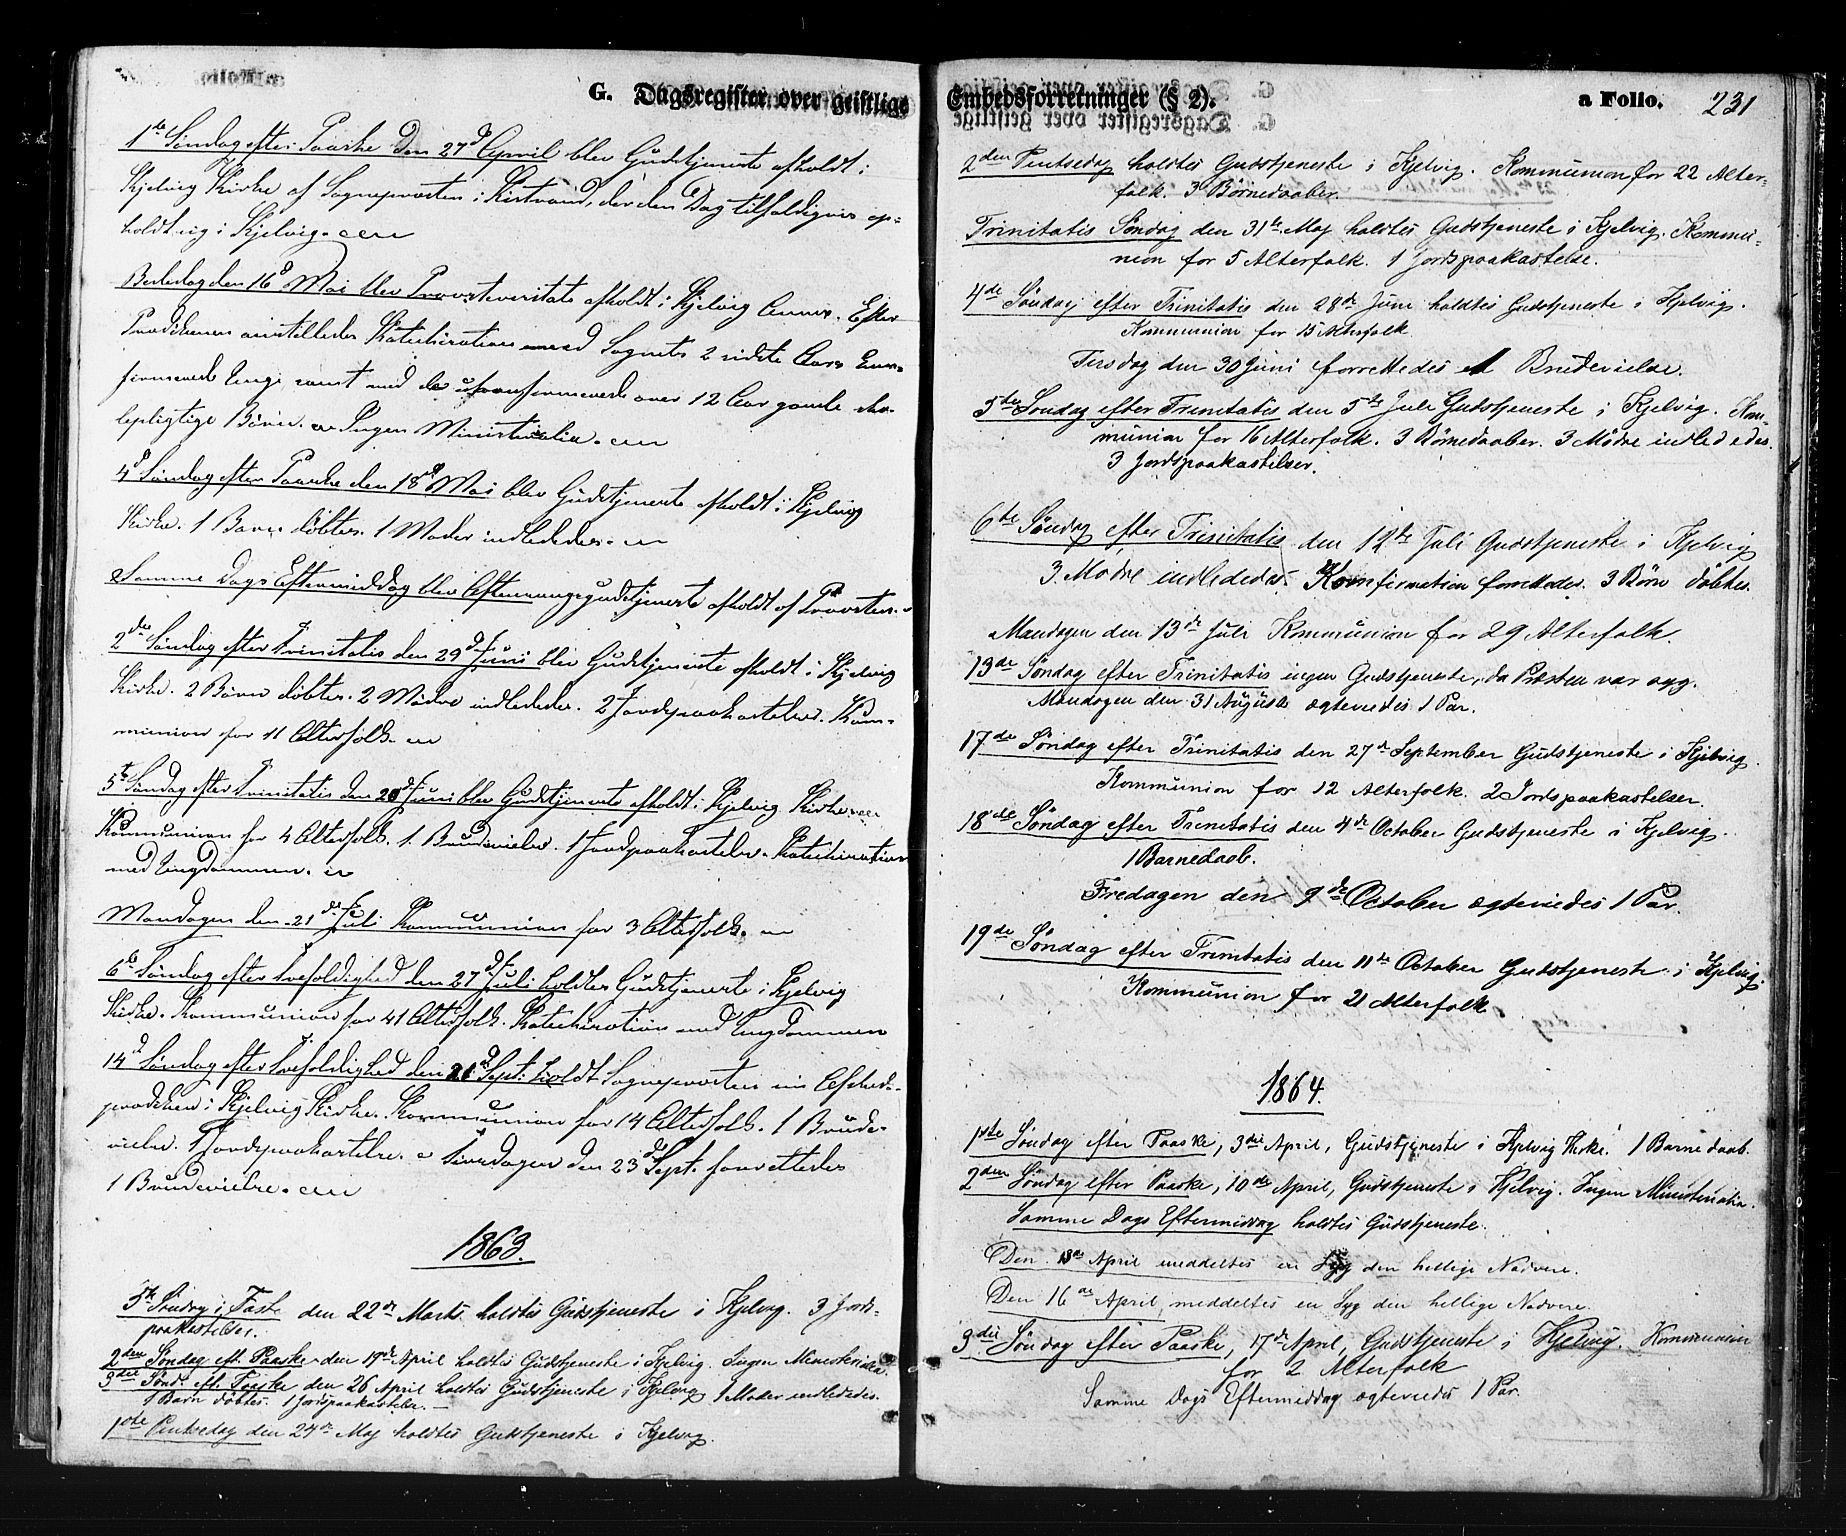 G. Dagsregister over geistlige
1ste Søndag efter Paaske den 27d April blev Gudstjeneste afholdt i
Kjelvig Kirke af Sognepræsten i Kistrand, der den Dag tilfældigvis op-
holdt sig i Kjelvig.
Bededag den 16d Mai blev Provstevisitats afholdt i Kjelvig Annex. Efter
Prædikenen anstilledes Katechisation med Sognets 2 sidste Aars Con-
firmerede Unge samt med de ukonfirmerede over 12 Aar gamle sko-
lepligtige Børn. Ingen Ministerialia.
4d Søndag efter Paaske den 18d Mai blev Gudstjeneste afholdt i Kjelvig
Kirke. 1 Barn døbtes. 1 Moder indlededes.
Samme Dags Eftermiddag blev Aftensangsgudstjeneste afholdt af Provsten.
2den Søndag efter Trinitatis den 29d Juni blev Gudstjeneste afholdt i Kjelvig
Kirke. 2 Børn døbtes. 2 Mødre indlededes. 2 Jordspaakastelser. Kom-
munion for 11 Alterfolk.
5te Søndag efter Trinitatis den 20d Juli blev Gudstjeneste afholdt i Kjelvig Kirke
Kommunion for 4 Alterfolk. 1 Brudevielse. 1 Jordspaakastelse. Katechisation
med Ungdommen.
Mandagen den 21de Juli Kommunion for 3 Alterfolk.
6te Søndag efter Trefoldighed den 27d Juli holdtes Gudstjeneste i Kjelvig
Kirke. Kommunion for 41 Alterfolk. Katechisation med Ungdommen
14d Søndag efter Trefoldighed den 21d Sept: holdt Sognepræsten sin Afskeds-
prædiken i Kjelvig Kirke. Kommunion for 14 Alterfolk. 1 Brude-
vielse. 1 Jordspaakastelse. Tirsdagen den 23d Sept. forrettedes
1 Brudevielse.
1863.
5te Søndag i Faste den 22de Marts holdtes Gudstjeneste i Kjelvig. 3 Jords-
paakastelser.
2den Søndag eft. Paaske den 19de April holdtes Gudstjeneste i Kjelvig. Ingen Ministerialia.
3die Sønd. eft. Paaske den 26 April holdtes Gudstjeneste i Kjelvig 1 Moder indlededes.
1 Barn døbtes. 1 Jordspaakastelse.
1ste Pintsedag den 24de Maj holdtes Gudstjeneste i Kjelvig.
Embedsforretninger (§ 2). a Folio. 231
2den Pintsedag holdtes Gudstjeneste i Kjelvig. Kommunion for 22 Alter-
folk. 3 Børnedaaber.
Trinitatis Søndag den 31te Maj holdtes Gudstjeneste i Kjelvig. Kommu-
nion for 5 Alterfolk. 1 Jordspaakastelse.
4de Søndag efter Trinitatis den 28de Juni holdtes Gudstjeneste i Kjelvig.
Kommunion for 15 Alterfolk
Tirsdag den 30 Juni forrettedes 1 Brudevielse.
5te Søndag efter Trinitatis den 5te Juli Gudstjeneste i Kjelvig. Kom-
munion for 16 Alterfolk. 3 Børnedaaber. 3 Mødre indlededes.
3 Jordspaakastelser.
6te Søndag efter Trinitatis den 12te Juli Gudstjeneste i Kjelvig
3 Mødre indlededes. Konfirmation forrettedes. 3 Børn døbtes.
Mandagen den 13de Juli Kommunion for 29 Alterfolk.
13de Søndag efter Trinitatis ingen Gudstjeneste, da Præsten var syg.
Mandagen den 31 August ægteviedes 1 Par.
17de Søndag efter Trinitatis den 27de September Gudstjeneste i Kjelvig.
Kommunion for 12 Alterfolk. 2 Jordspaakastelser.
18de Søndag efter Trinitatis den 4de October Gudstjeneste i Kjelvig.
1 Barnedaab.
Fredagen den 9de October ægteviedes 1 Par.
19de Søndag efter Trinitatis den 11te October Gudstjeneste i Kjelvig.
Kommunion for 21 Alterfolk
1864.
1ste Søndag efter Paaske, 3die April, Gudstjeneste i Kjelvig Kirke. 1 Barnedaab.
2den Søndag efter Paaske, 10de April, Gudstjeneste i Kjelvig. Ingen Ministerialia.
Samme Dags Eftermiddag holdtes Gudstjeneste.
Den 13de April meddeltes en Syg den hellige Nadvere.
Den 16de April, meddeltes en Syg den hellige Nadvere.
3die Søndag efter Paaske, 17de April, Gudstjeneste i Kjelvig. Kommunion
for 2 Alterfolk
Samme Dags Eftermiddag ægteviedes 1 Par.